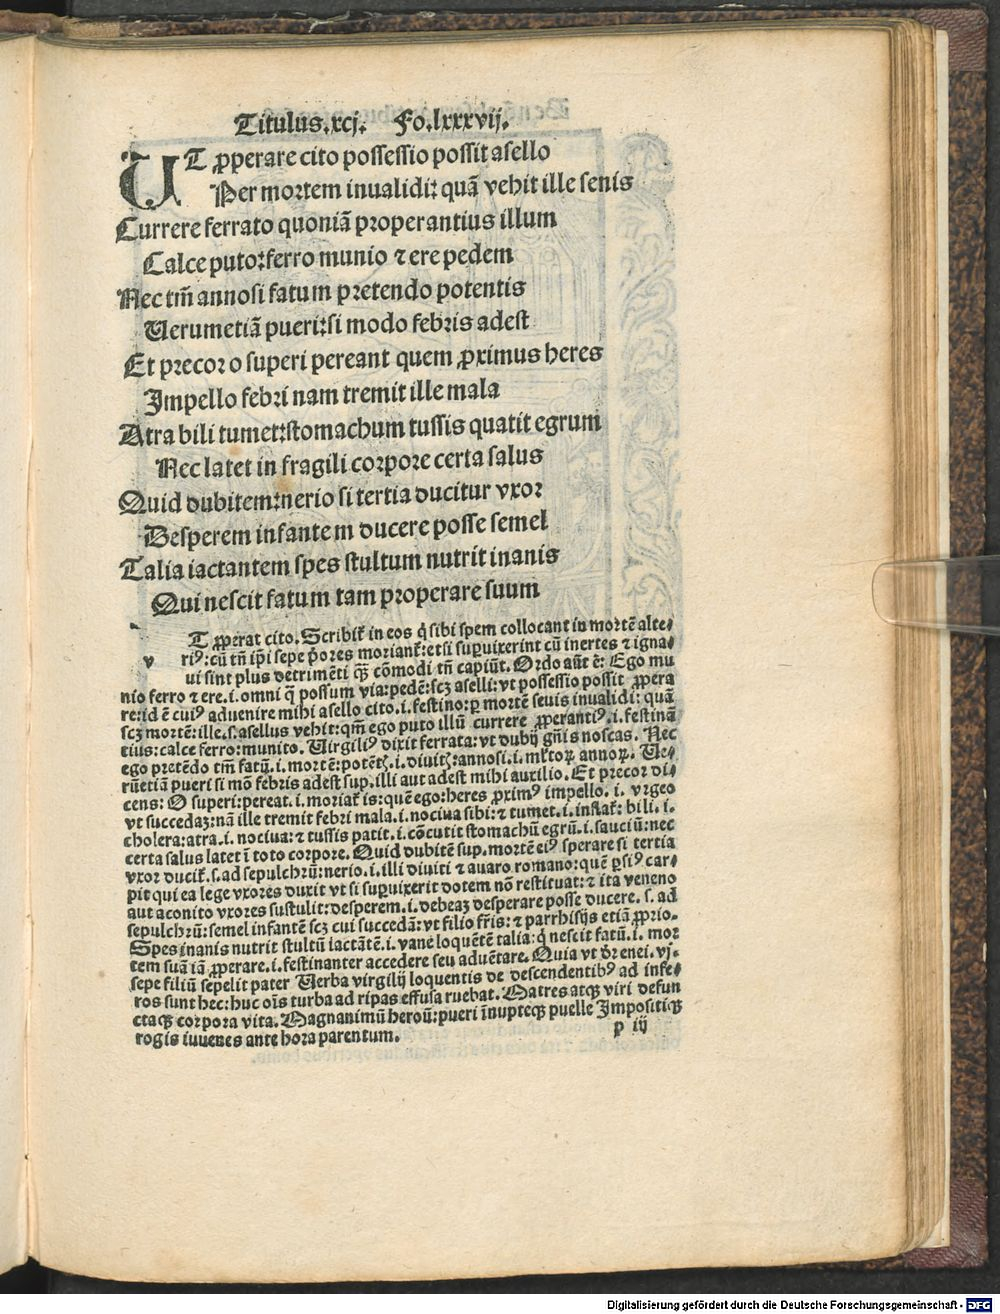 Titulus.xcj. Fo.lxxxvij.
UT ꝓperare cito possessio possit asello
Per mortem inualidi: quã vehit ille senis
Currere ferrato quoniã properantius illum
Calce puto: ferro munio ⁊ ere pedem
Nec tm̃ annosi fatum pretendo potentis
Uerumetiã pueri: si modo febris adest
Et precor o superi pereant quem ꝓximus heres
Impello febri nam tremit ille mala
Atra bili tumet: stomachum tussis quatit egrum
Nec latet in fragili corpore certa salus
Quid dubitem: nerio si tertia ducitur vxor
Desperem infantem ducere posse semel
Talia iactantem spes stultum nutrit inanis
Qui nescit fatum tam properare suum
vT ꝓperat cito. Scribit̃ in eos q̃ sibi spem collocant in mortẽ alte⸗
riꝰ: cũ tñ ip̃i sepe p̃ores moriant̃: et si suꝑuixerint cũ inertes ⁊ igna⸗
ui sint plus detrimẽti qꝫ cõmodi tñ capiũt. Ordo aũt ẽ: Ego mu
nio ferro ⁊ ere .i. omni q̃ possum via: pedẽ: scꝫ aselli: vt possessio possit ꝓpera
re: id ẽ cuiꝰ aduenire mihi asello cito .i. festino: ꝑ mortẽ seuis inualidi: quã
scꝫ mortẽ: ille .s. asellus vehit: qm̃ ego puto illũ currere ꝓperantiꝰ .i. festinã
tius: calce ferro: munito. Uirgiliꝰ dixit ferrata: vt dubij gñis noscas. Nec
ego pretẽdo tm̃ fatũ .i. mortẽ: potẽtꝭ .i. diuitꝭ: annosi .i. mĺtoꝝ annoꝝ. Ue⸗
rũetiã pueri si mõ febris adest sup. illi aut adest mihi auxilio. Et precor di⸗
cens: O superi: pereat .i. moriat̃ is: quẽ ego: heres ꝓximꝰ impello .i. vrgeo
vt succedaꝫ: nã ille tremit febri mala .i. nociua sibi: ⁊ tumet .i. inflat̃: bili .i.
cholera: atra .i. nociua: ⁊ tussis patit .i. cõcutit stomachũ egrũ .i. sauciũ: nec
certa salus latet ĩ toto corpore. Quid dubitẽ sup. mortẽ eiꝰ sperare si tertia
vxor ducit̃ .s. ad sepulchrũ: nerio .i. illi diuiti ⁊ auaro romano: quẽ ꝑsiꝰ car⸗
pit qui ea lege vxores duxit vt si suꝑuixerit dotem nõ restituat: ⁊ ita veneno
aut aconito vxores sustulit: desperem .i. debeaꝫ desperare posse ducere .s. ad
sepulchrũ: semel infantẽ scꝫ cui succedã: vt filio fr̃is: ⁊ parrhisijs etiã ꝓprio.
Spes inanis nutrit stultũ iactãtẽ .i. vane loquẽtẽ talia: q̃ nescit fatũ .i. mor
tem suã iã ꝓperare .i. festinanter accedere seu aduẽtare. Quia vt dr̃ enei. vj.
sepe filiũ sepelit pater Uerba virgilij loquentis de descendentibꝰ ad infe⸗
ros sunt hec: huc oĩs turba ad ripas effusa ruebat. Matres atqꝫ viri defun
ctaqꝫ corpora vita. Magnanimũ heroũ: pueri ĩnupteqꝫ puelle Impositiqꝫ
rogis iuuenes ante hora parentum.
p iij
Digitalisierung gefördert durch die Deutsche Forschungsgemeinschaft - DFG